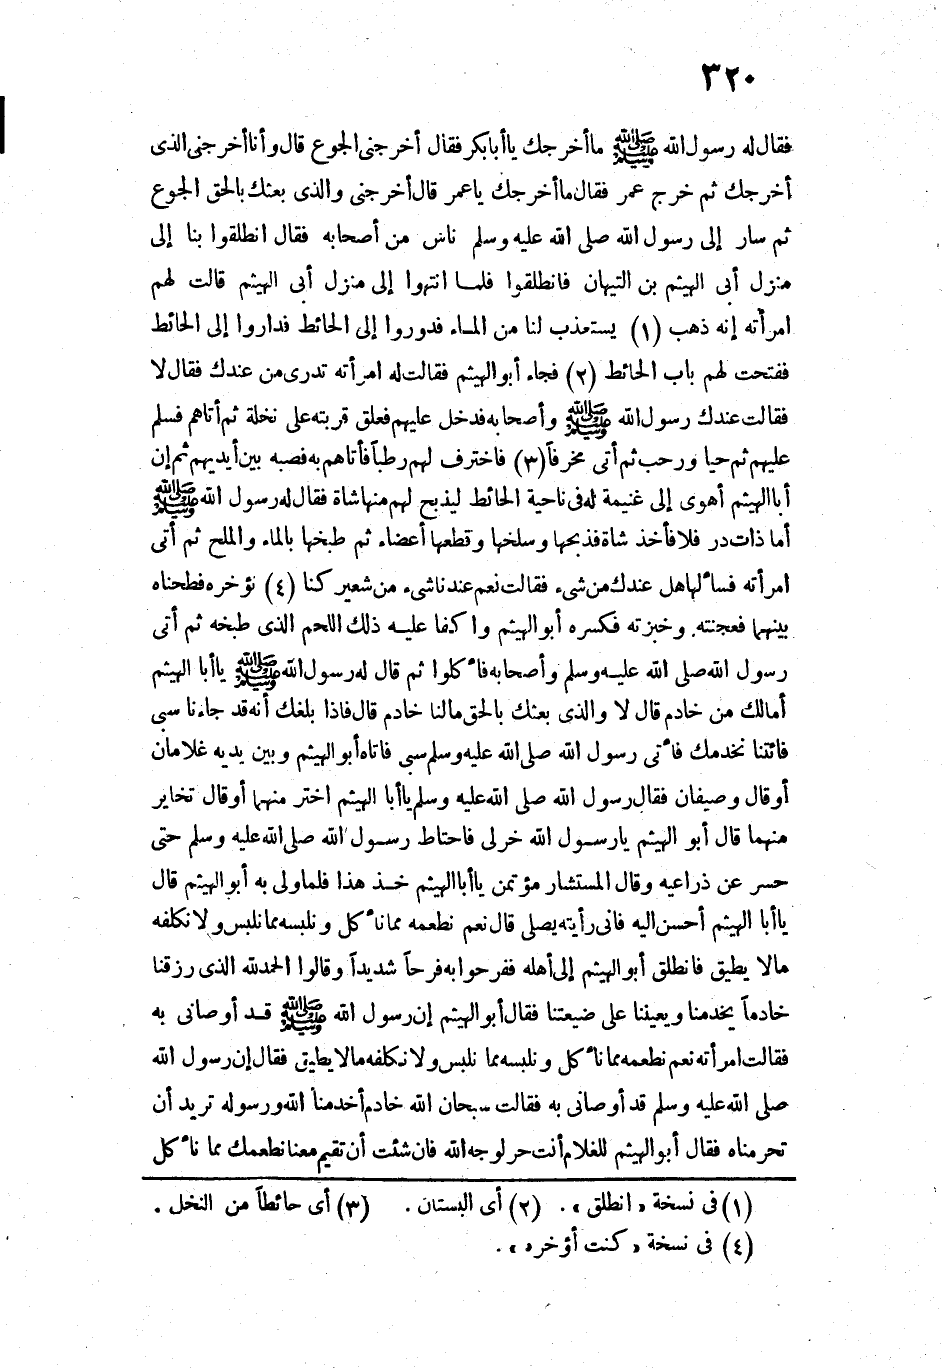 ٣٢٠
فقال له رسول الله ﷺ ما أخرجك يا أبا بكر فقال أخرجنى الجوع قال وأنا أخرجنى الذى
أخرجك ثم خرج عمر فقال ما أخرجك يا عمر قال أخرجنى والذى بعثك بالحق الجوع
ثم سار إلى رسول الله صلى الله عليه وسلم ناس من أصحابه فقال انطلقوا بنا إلى
منزل أبى الهيثم بن التيهان فانطلقوا فلما انتهوا إلى منزل أبى الهيثم قالت لهم
امرأته إنه ذهب (١) يستعذب لنا من الماء فدوروا إلى الحائط فداروا إلى الحائط
ففتحت لهم باب الحائط (٢) فجاء أبو الهيثم فقالت له امرأته تدرى من عندك فقال لا
فقالت عندك رسول الله ﷺ وأصحابه فدخل عليهم فعلق قربته على نخلة ثم أتاهم فسلم
عليهم ثم حيا ورحب ثم أتى مخرفاً (٣) فاخترف لهم رطباً فأتاهم به فصبه بين أيديهم ثم إن
أبا الهيثم أهوى إلى غنيمة له فى ناحية الحائط ليذبح لهم منها شاة فقال له رسول الله ﷺ
أما ذات در فلا فأخذ شاة فذبحها وسلخها وقطعها أعضاء ثم طبخها بالماء والملح ثم أتى
امرأته فسألها هل عندك من شىء فقالت نعم عندنا شىء من شعير كنا (٤) نؤخره فطحناه
بينهما فعجنته وخبزته فكسره أبو الهيثم واكفا عليه ذلك اللحم الذى طبخه ثم أتى
رسول الله صلى الله عليه وسلم وأصحابه فأكلوا ثم قال له رسول الله ﷺ يا أبا الهيثم
أمالك من خادم قال لا والذى بعثك بالحق مالنا خادم قال فاذا بلغك أنه قد جاءنا سبى
فائتنا نخدمك فأتى رسول الله صلى الله عليه وسلم سبى فاتاه أبو الهيثم وبين يديه غلامان
أو قال وصيفان فقال رسول الله صلى الله عليه وسلم يا أبا الهيثم اختر منهما أو قال تخاير
منهما قال أبو الهيثم يا رسول الله خر لى فاحتاط رسول الله صلى الله عليه وسلم حتى
حسر عن ذراعيه وقال المستشار مؤتمن يا أبا الهيثم خذ هذا فلما ولى به أبو الهيثم قال
يا أبا الهيثم أحسن اليه فانى رأيته يصلى قال نعم نطعمه مما نأكل ونلبسه مما نلبس ولا نكلفه
مالا يطيق فانطلق أبو الهيثم إلى أهله ففرحوا به فرحاً شديداً وقالوا الحمد لله الذى رزقنا
خادماً يخدمنا ويعيننا على ضيعتنا فقال أبو الهيثم إن رسول الله ﷺ قد أوصانى به
فقالت امرأته نعم نطعمه مما نأكل ونلبسه مما نلبس ولا نكلفه مالا يطيق فقال إن رسول الله
صلى الله عليه وسلم قد أوصانى به فقالت سبحان الله خادم أخدمنا الله ورسوله تريد أن
تحرمناه فقال أبو الهيثم للغلام أنت حر لوجه الله فان شئت أن تقيم معنا نطعمك مما نأكل
(١) فى نسخة «انطلق». (٢) أى البستان. (٣) أى حائطاً من النخل.
(٤) فى نسخة «كنت أؤخره».